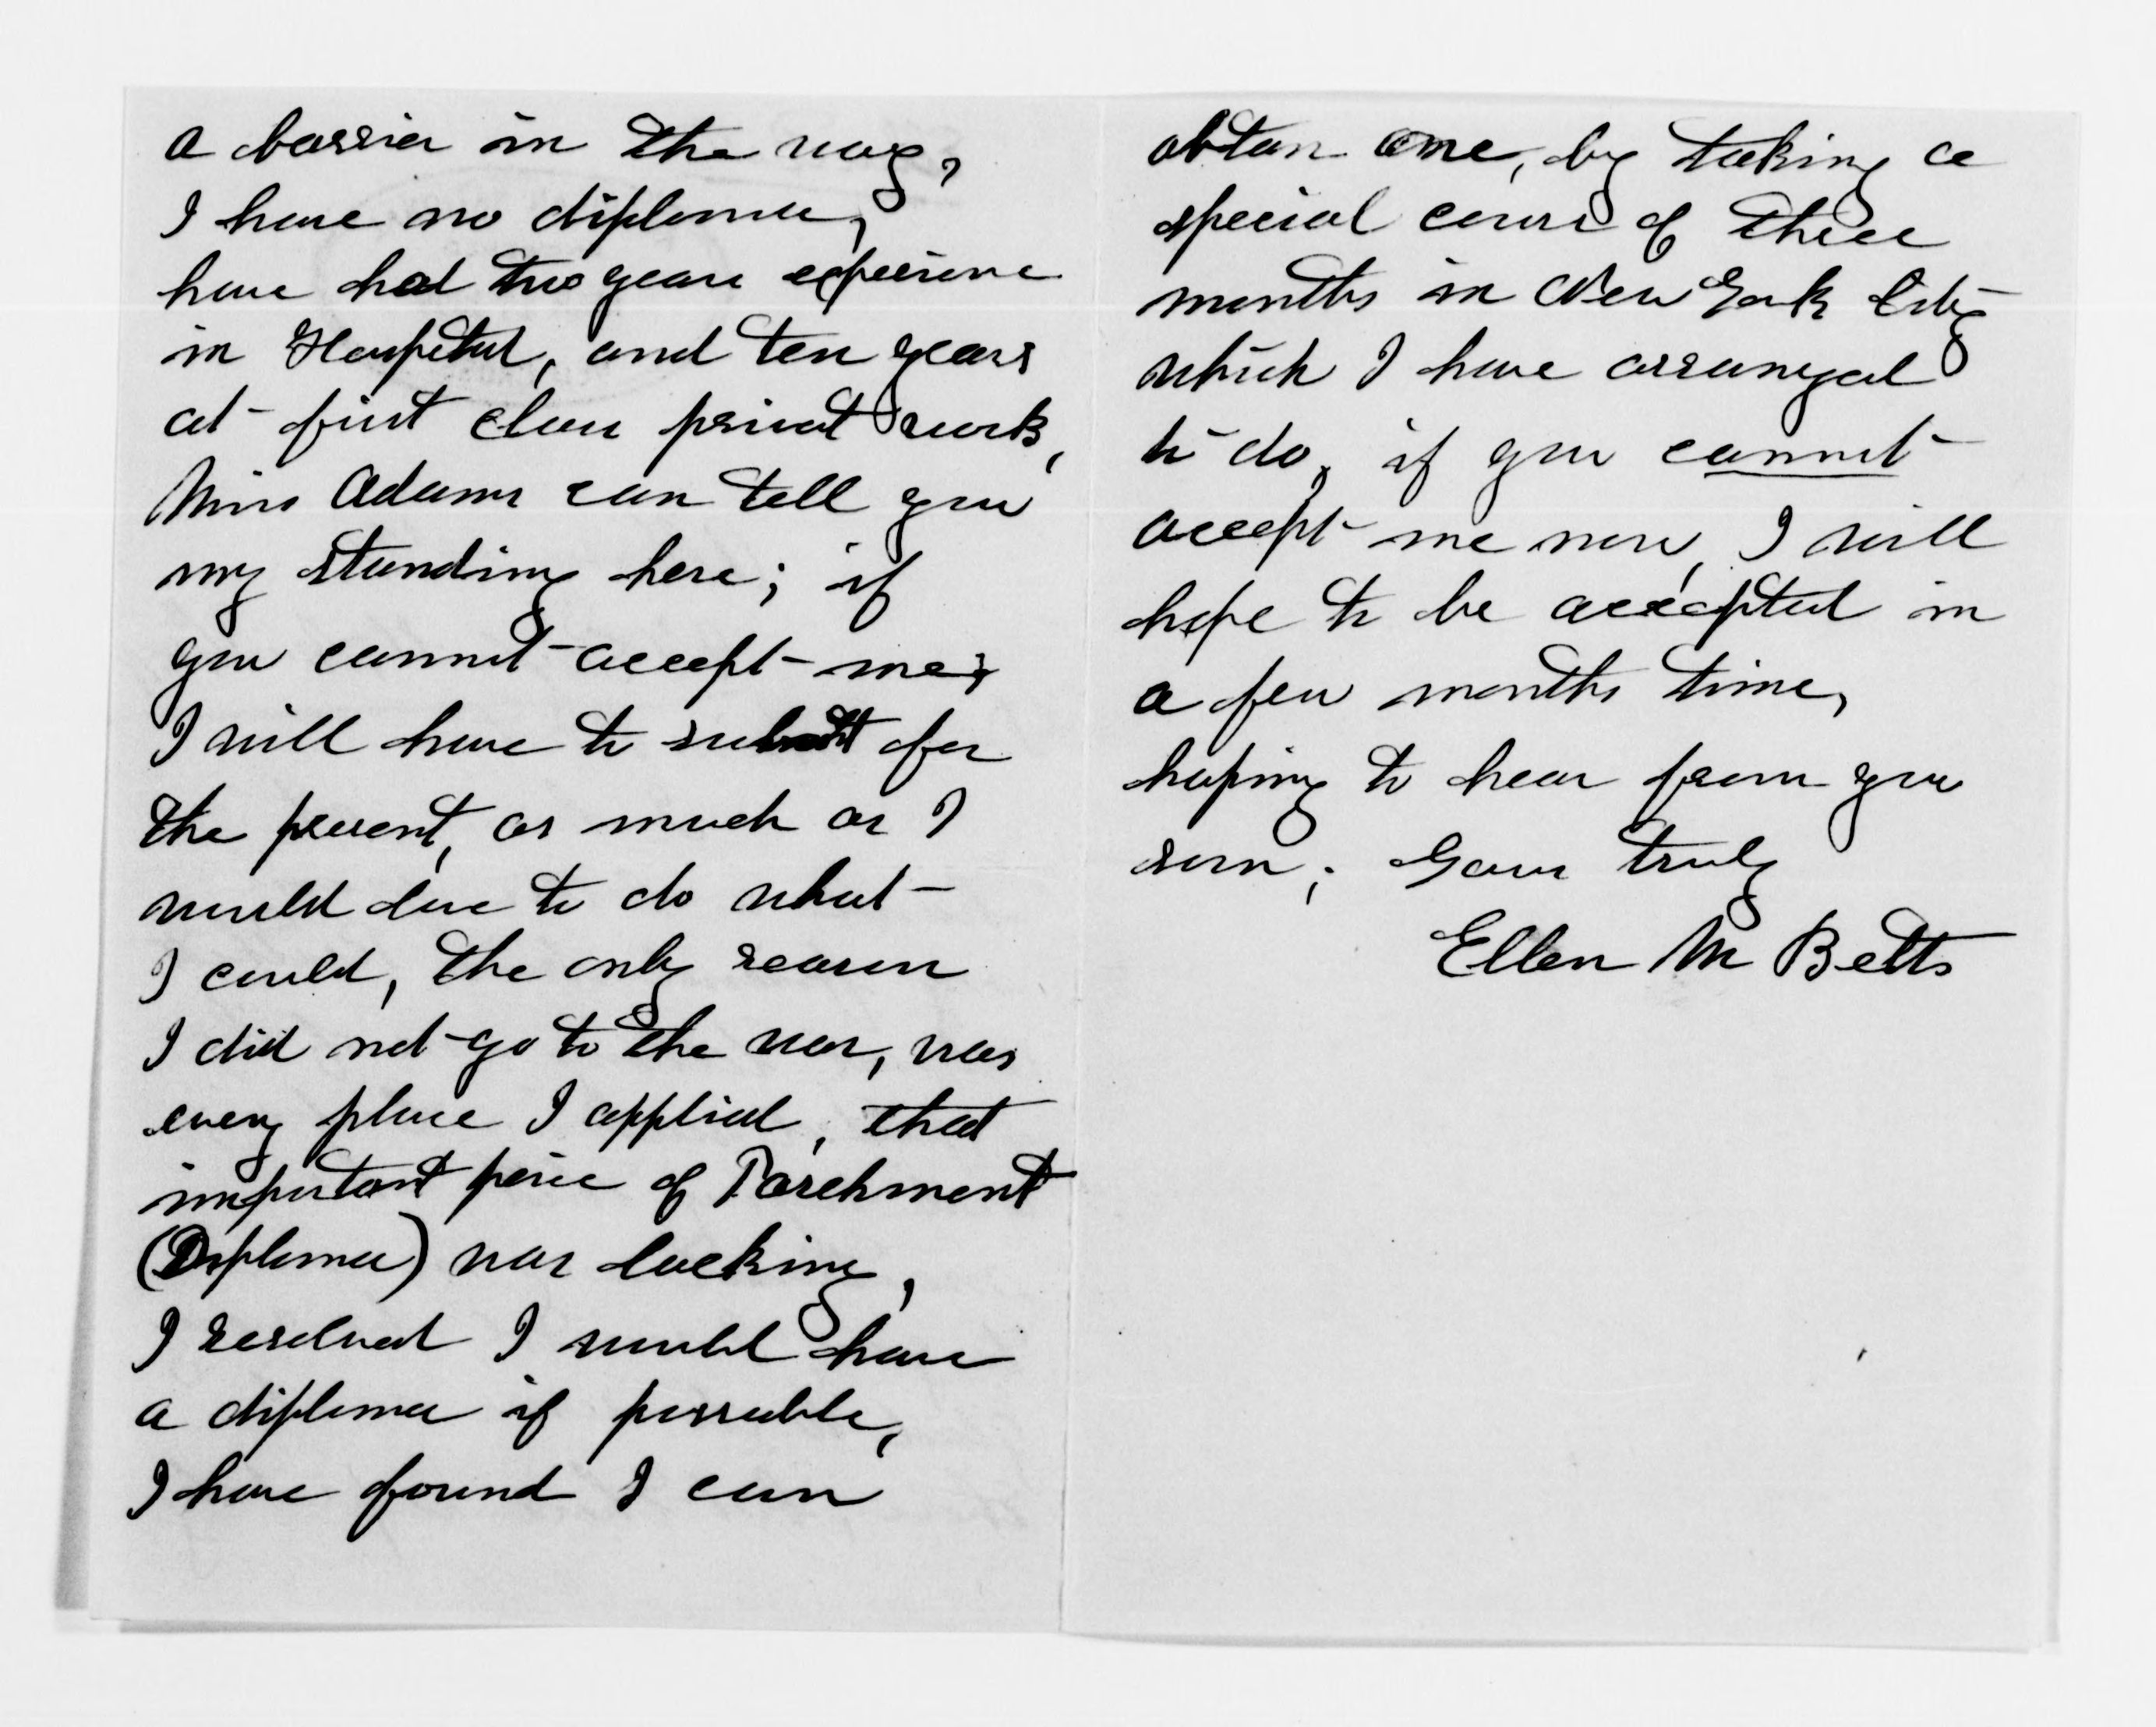 a barrier in the way,
I have no diploma,
have had two years experience
in Hospital, and ten years
at first class privat work,
Miss Adams can tell you
my standing here; if
you cannot accept me,
I will have to submit for
the present, as much as I
would love to do what
I could, the only reason
I did not go to the war, was
every place I applied, that
important peice of Parchment
(Diploma) was lacking,
I resolved I would have
a diploma if possable,
I have found I can
obtan one, by taking a
special cours of three
months in New York City
which I have arranged
to do, if you cannot
accept me now, I will
hope to be accepted in
a few months time,
hoping to hear from you
soon; Yours truly
Ellen M Betts